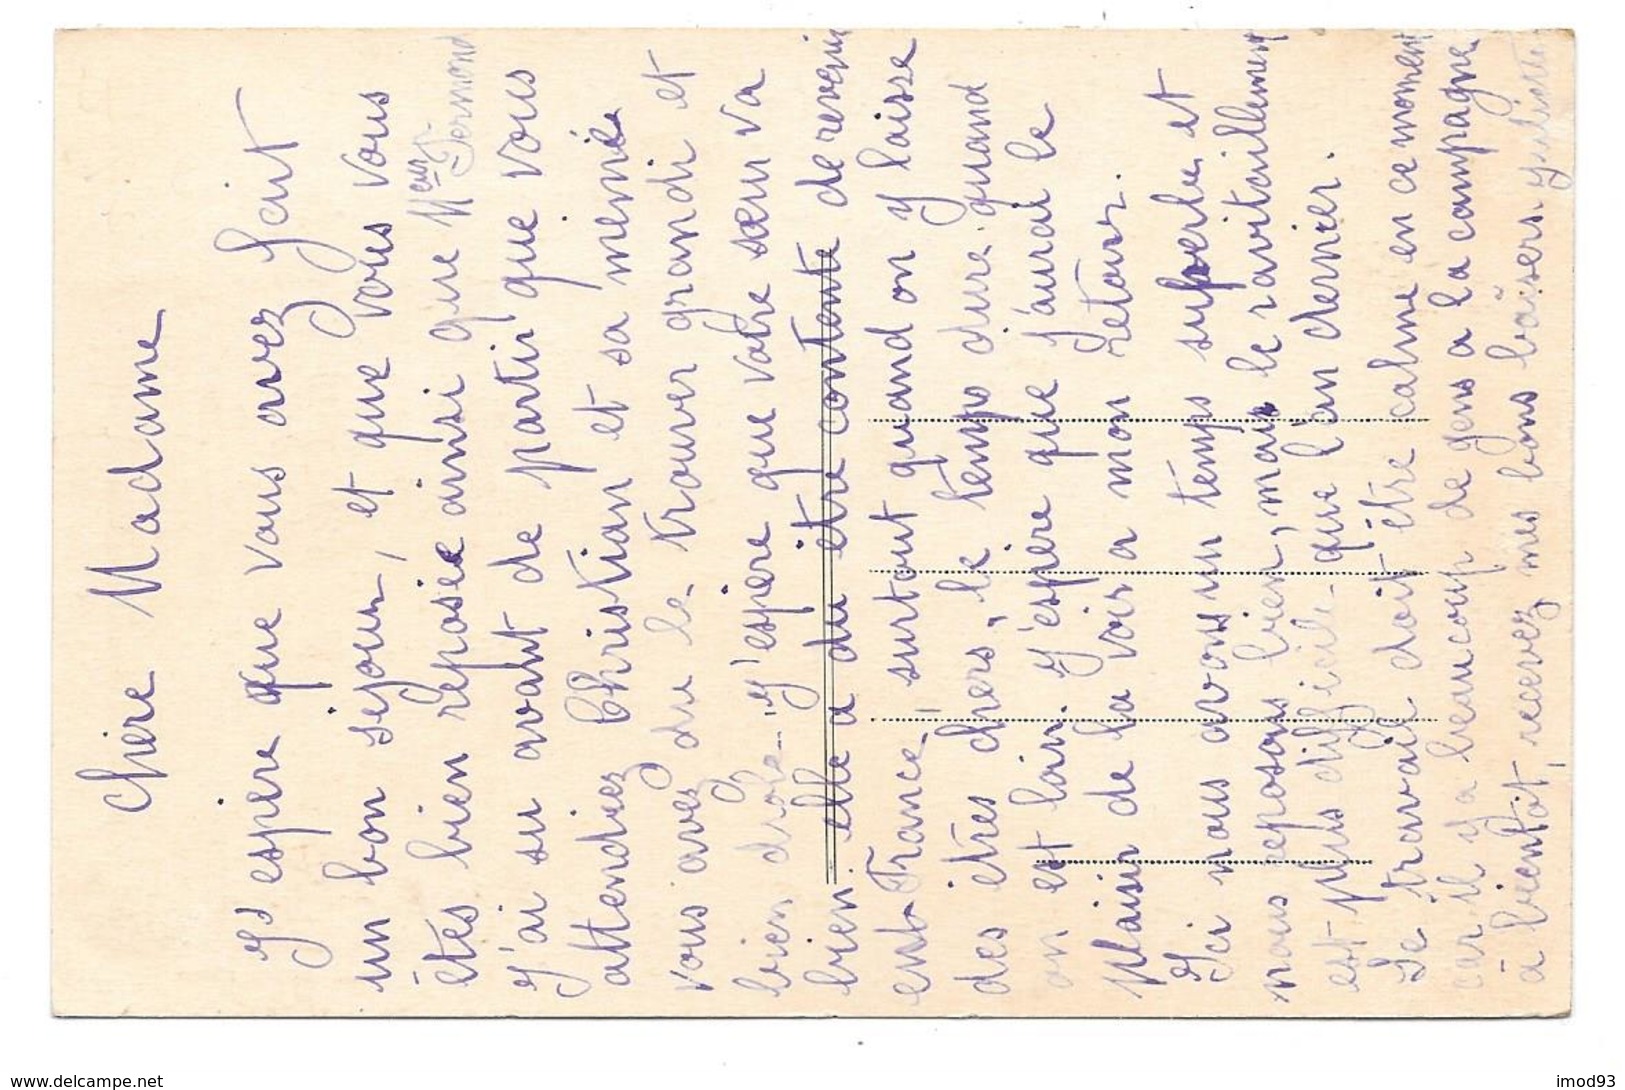 Chère Madame
J'espère que vous avez fait
un bon séjour, et que vous vous
êtes bien reposée ainsi que Meur Fermond
J'ai su avant de partir que vous
attendiez Christian et sa mémée
vous avez du le trouver grandi et
bien drôle. J'espère que votre sœur va
bien. elle a du être contente de revenir
en France, surtout quand on y laisse
des êtres chers, le temps dure quand
on est loin. J'espère que j'aurai le
plaisir de la voir a mon retour.
Ici nous avons un temps superbe et
nous reposons bien, mais le ravitaillement
est plus difficile que l'an dernier.
Le travail doit être calme en ce moment
car il y a beaucoup de gens a la campagne
à bientôt, recevez mes bons baisers
www.delcampe.net
imod93